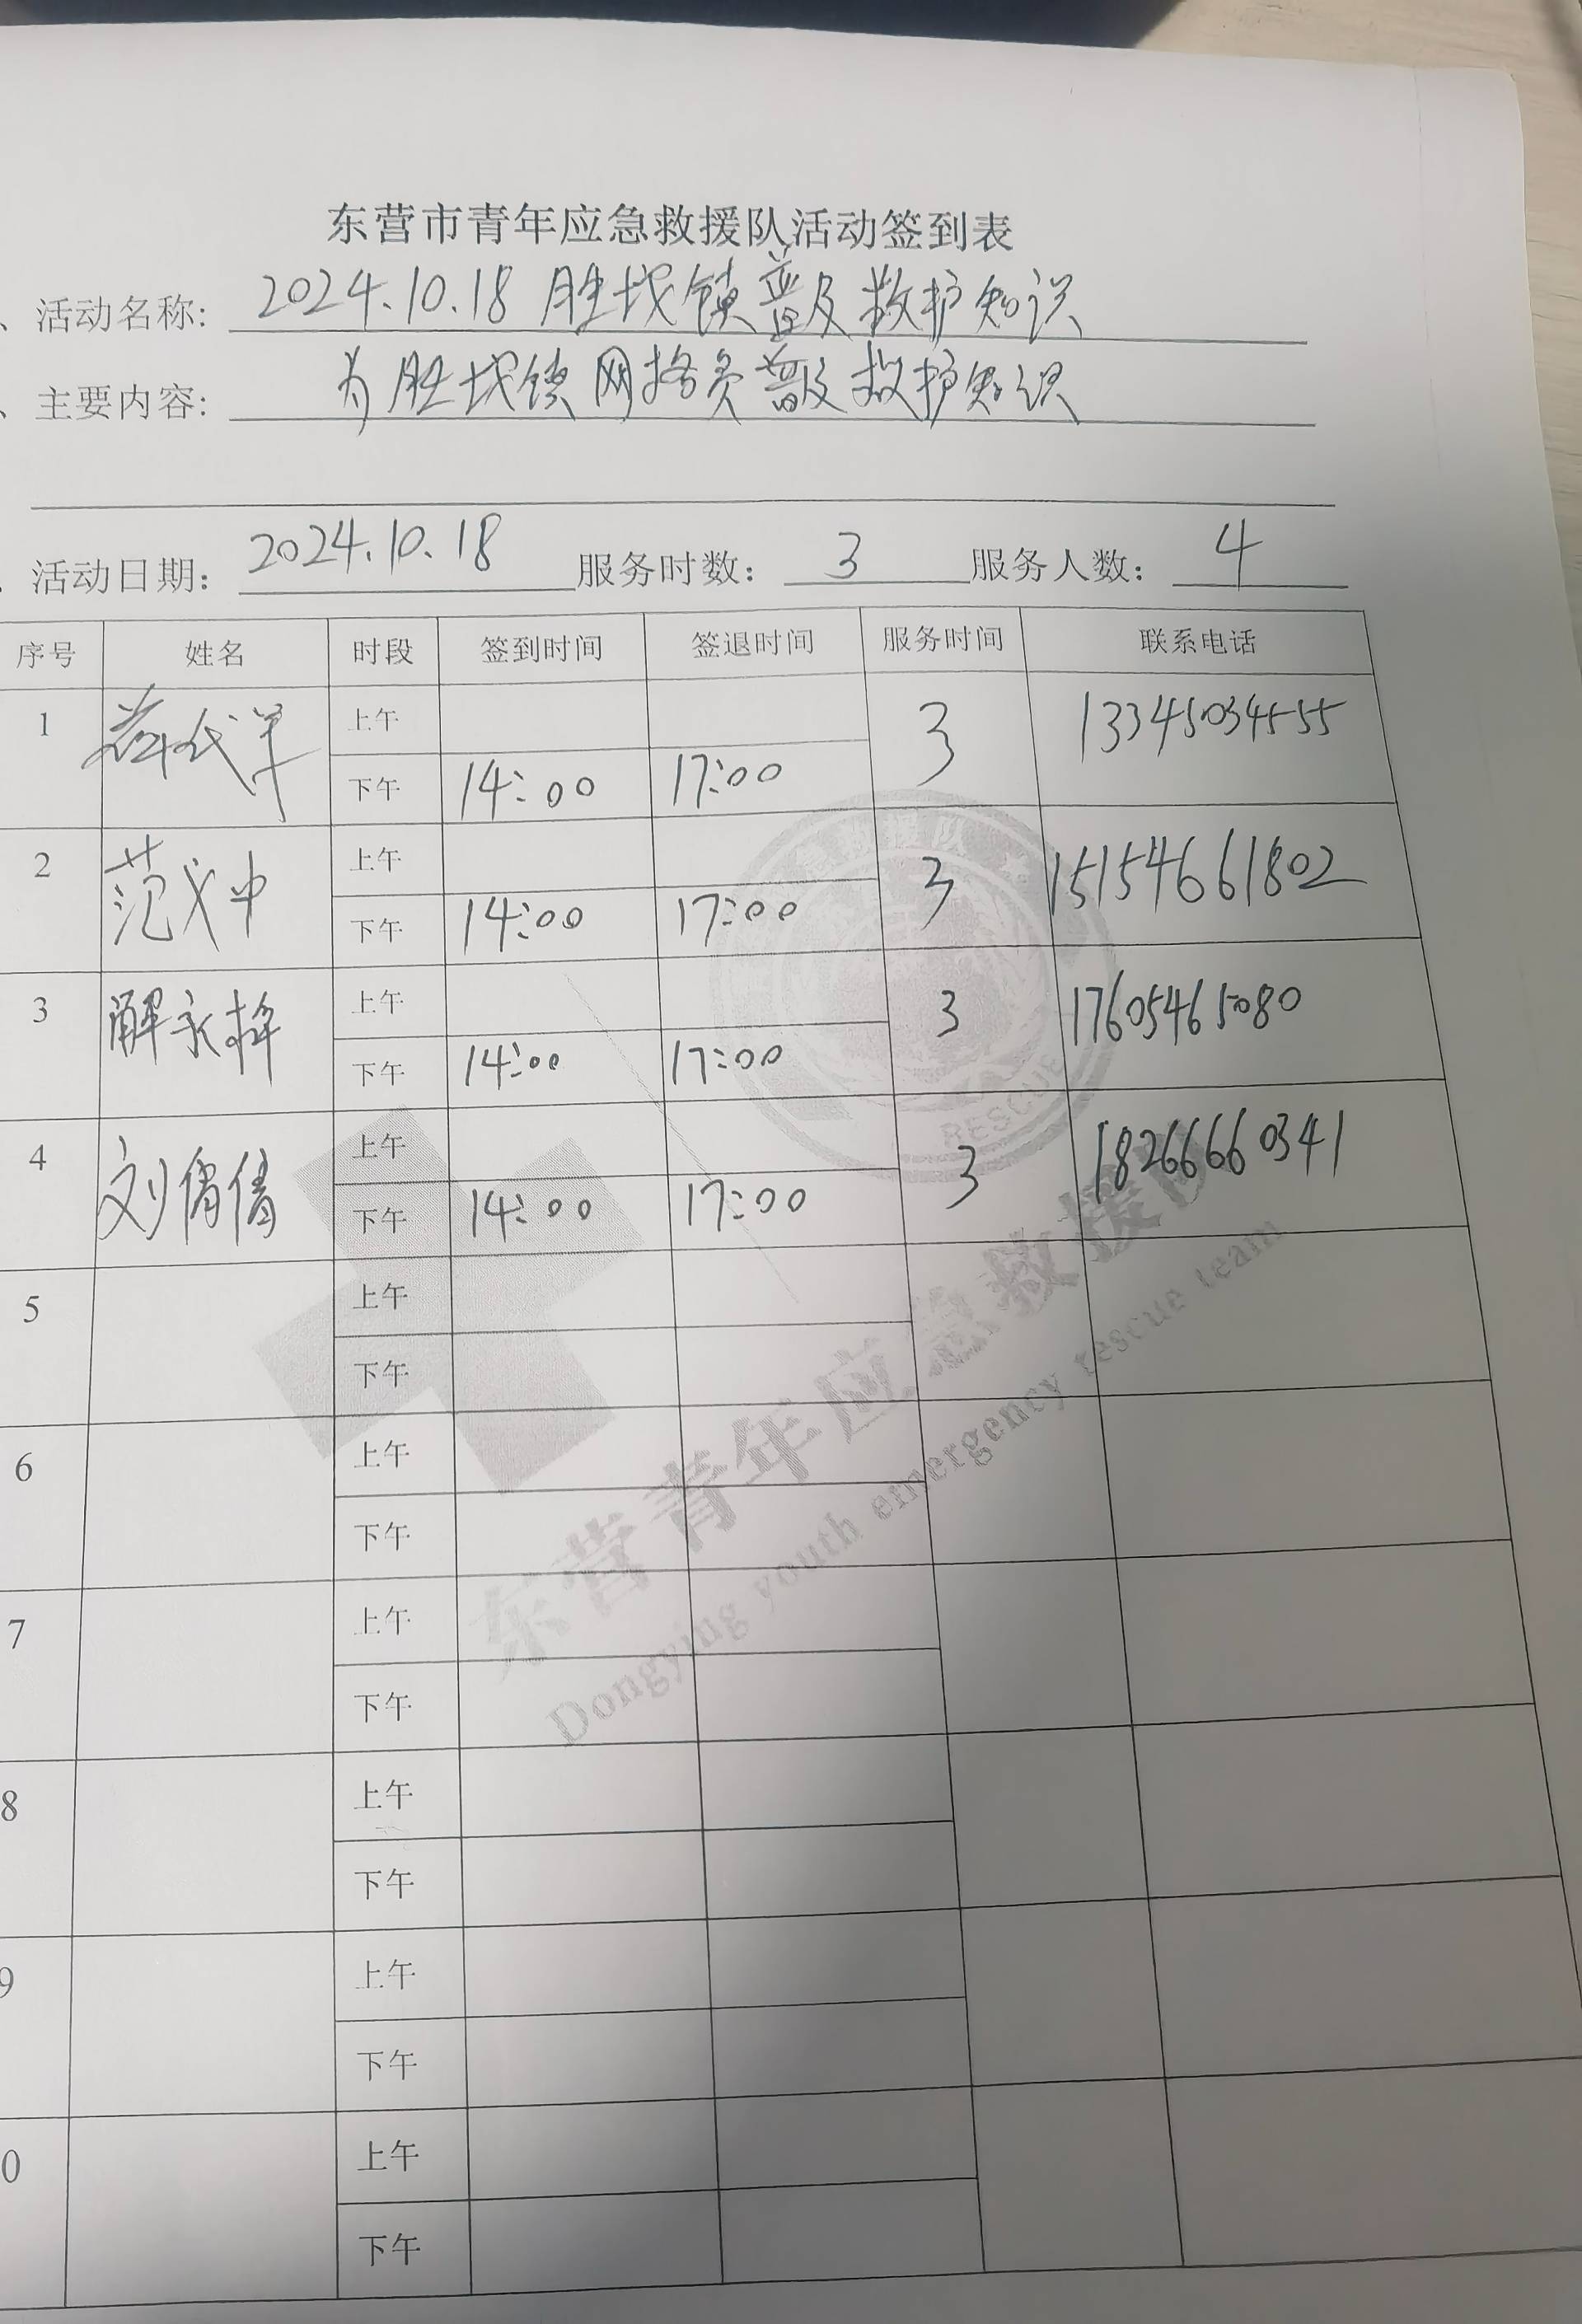 东营市青年应急救援队活动签到表
、活动名称: 2024.10.18 胜坨镇普及救护知识
、主要内容: 为胜坨镇网格员普及救护知识
、活动日期: 2024.10.18 服务时数: 3 服务人数: 4
序号 姓名 时段 签到时间 签退时间 服务时间 联系电话
1 上午 3 13345034555
下午 14:00 17:00
2 范 中 上午 3 15154661802
下午 14:00 17:00
3 解永 上午 3 17605465080
下午 14:00 17:00
4 刘倩倩 上午 3 18266660341
下午 14:00 17:00
5 上午
下午
6 上午
下午
7 上午
下午
8 上午
下午
9 上午
下午
0 上午
下午
东营青年应急救援队
Dongying youth emergency rescue team
RESCUE